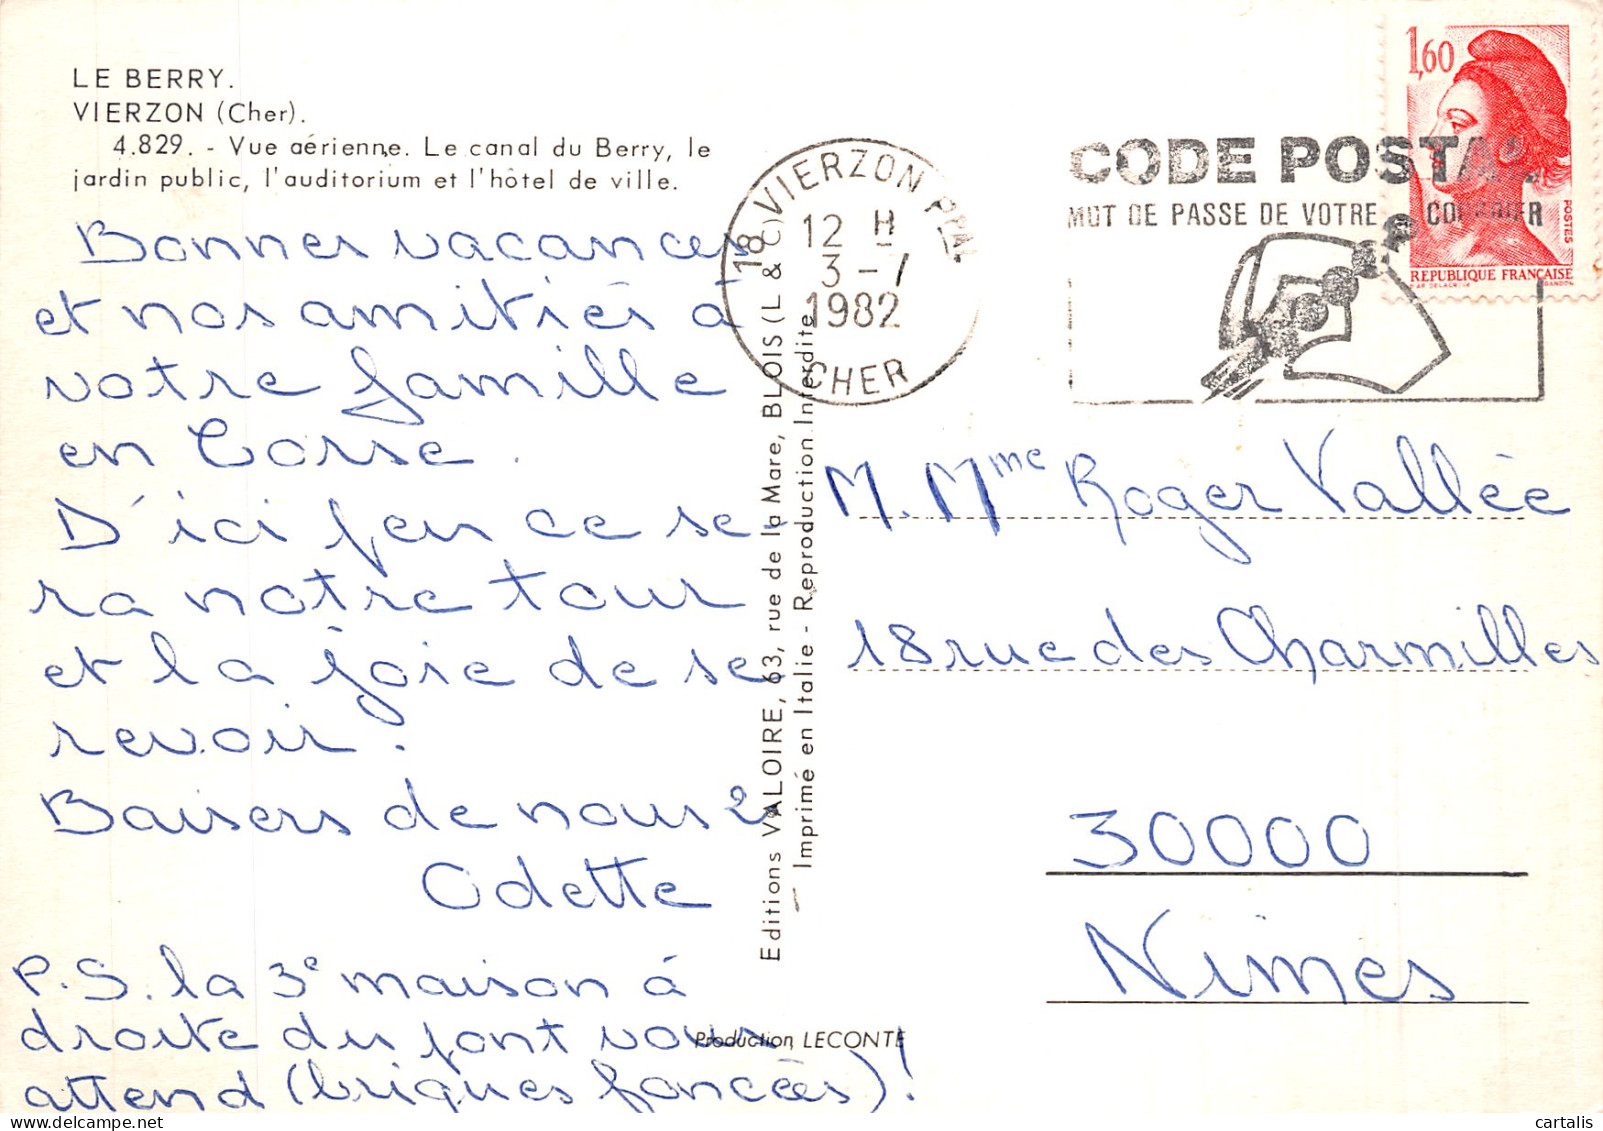 LE BERRY.
VIERZON (Cher).
4.829. - Vue aérienne. Le canal du Berry, le
jardin public, l'auditorium et l'hôtel de ville.
Bonnes vacances
et nos amitiés à
votre famille
en Corse.
D'ici peu ce se
ra notre tour
et la joie de se
revoir.
Baisers de nous 2
Odette
P.S. la 3e maison à
droite du pont vous
attend (briques foncées)!
Editions VALOIRE, 63, rue de la Mare, BLOIS (L & C)
Imprimé en Italie - Reproduction Interdite
Production LECONTE
18 VIERZON PAL
12 H
3 - 7
1982
CHER
CODE POSTAL
MOT DE PASSE DE VOTRE COURRIER
1,60
POSTES
REPUBLIQUE FRANÇAISE
D'AP. DELACROIX GANDON
M. Mme Roger Vallée
18 rue des Charmilles
30000
Nimes
cartalis